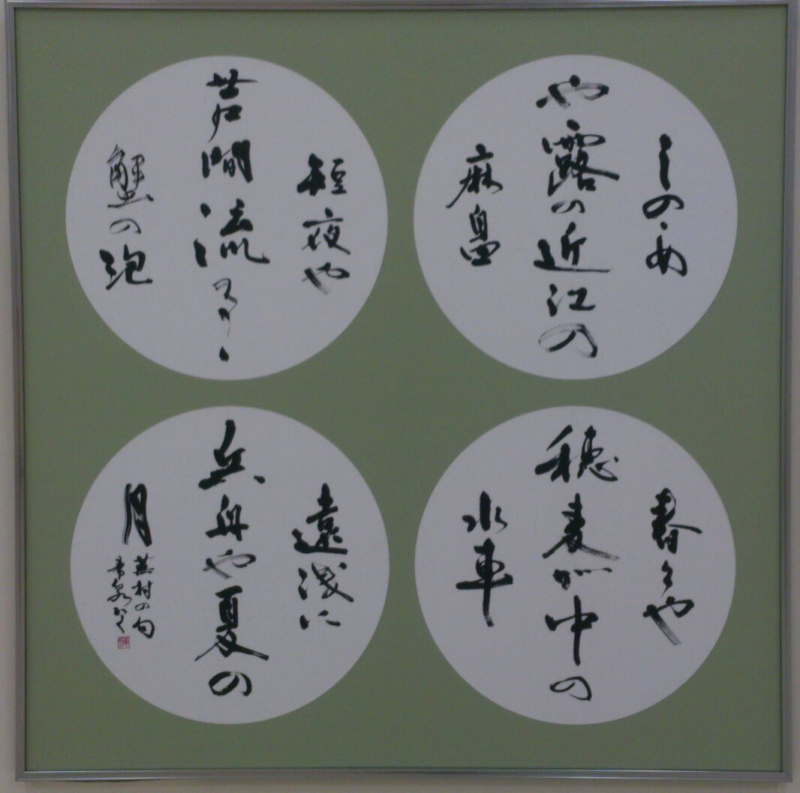 しのゝめ
や露の近江の
麻畠
短夜や
芦間流るゝ
蟹の泡
舂くや
穂麦が中の
水車
遠浅に
兵舟や夏の
月
蕪村の句